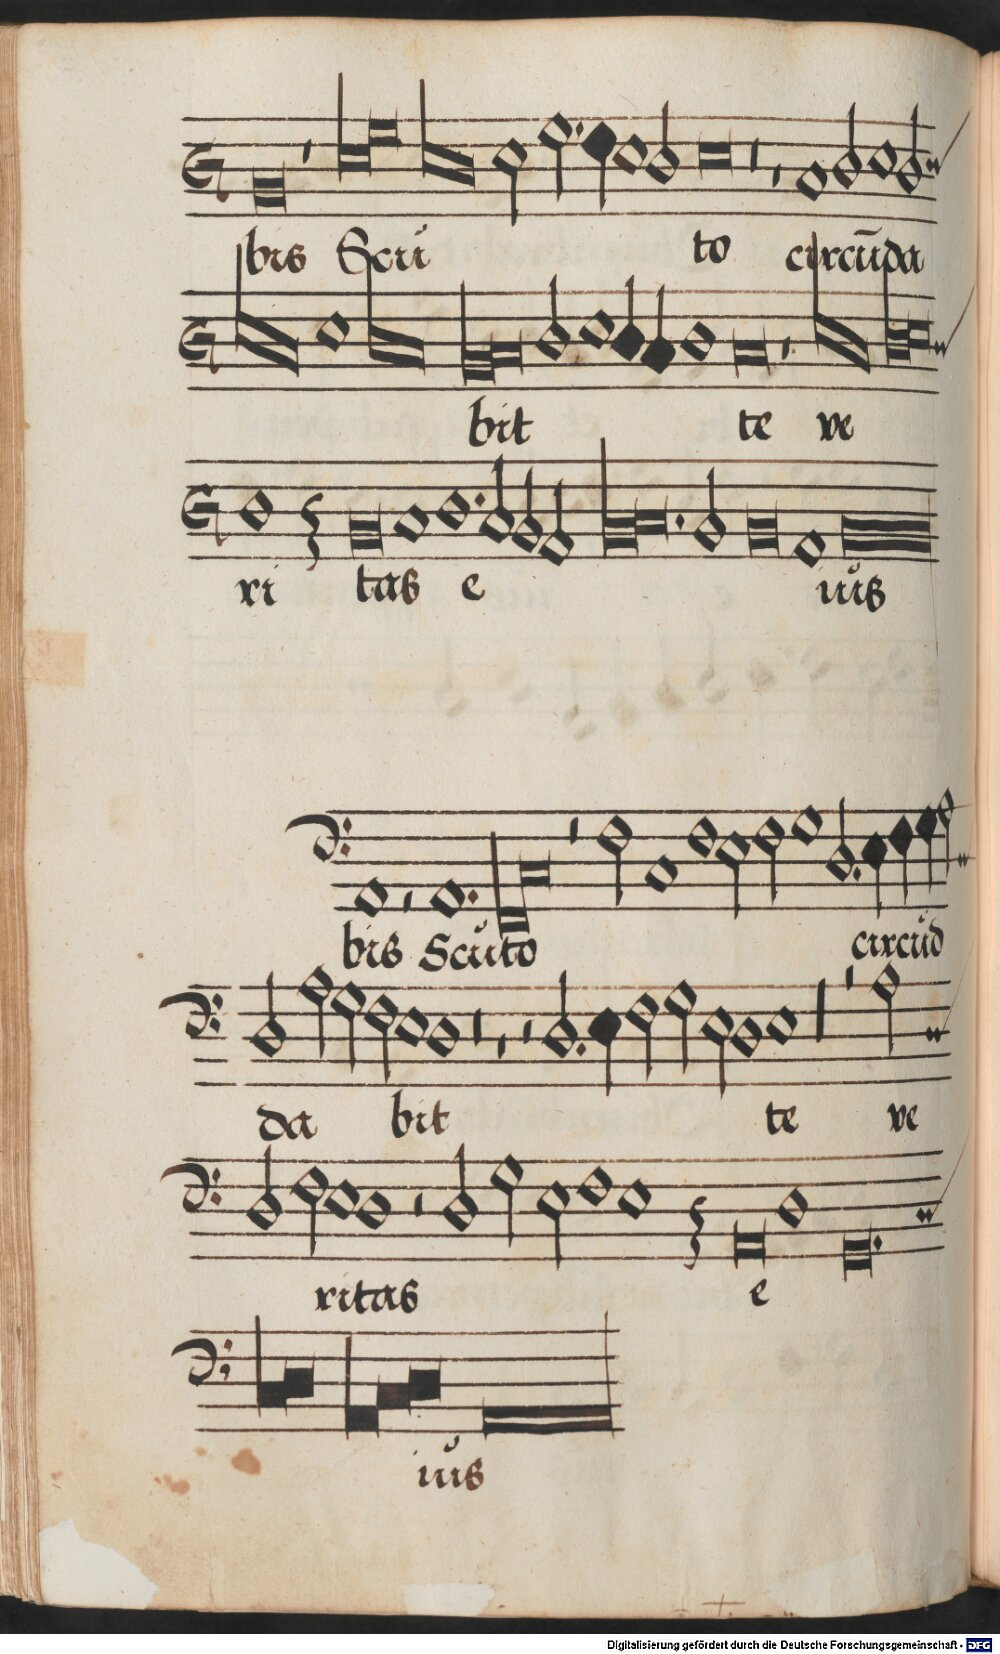 bis Scu to circūda
bit te ve
ri tas e ius
bis Scuto circud
da bit te ve
ritas e
ius
Digitalisierung gefördert durch die Deutsche Forschungsgemeinschaft - DFG